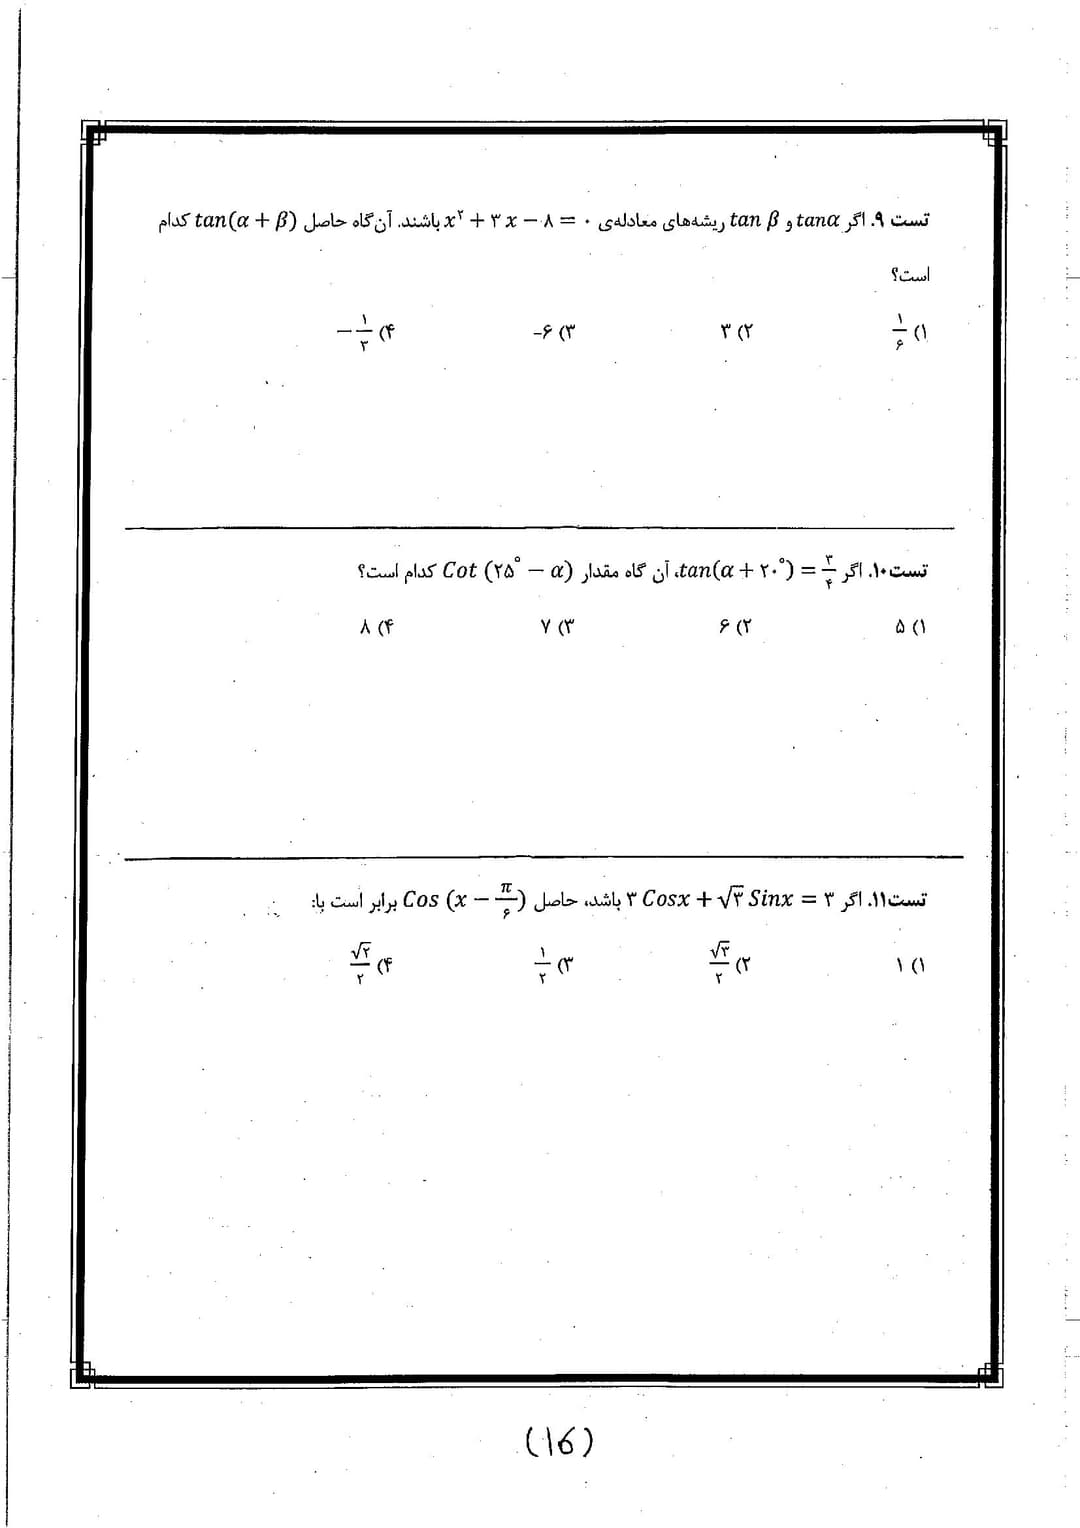 تست ۹. اگر tanα و tan β ریشه‌های معادله‌ی x² + ۳ x − ۸ = ۰ باشند. آن‌گاه حاصل tan(α + β) کدام
است؟
۱) ۱/۶ ۲) ۳ ۳) ۶- ۴) −۱/۳
تست۱۰. اگر tan(α + ۲۰°) = ۳/۴، آن گاه مقدار Cot (۲۵° − α) کدام است؟
۱) ۵ ۲) ۶ ۳) ۷ ۴) ۸
تست۱۱. اگر ۳ Cosx + √۳ Sinx = ۳ باشد، حاصل Cos (x − π/۶) برابر است با:
۱) ۱ ۲) √۳/۲ ۳) ۱/۲ ۴) √۲/۲
(16)